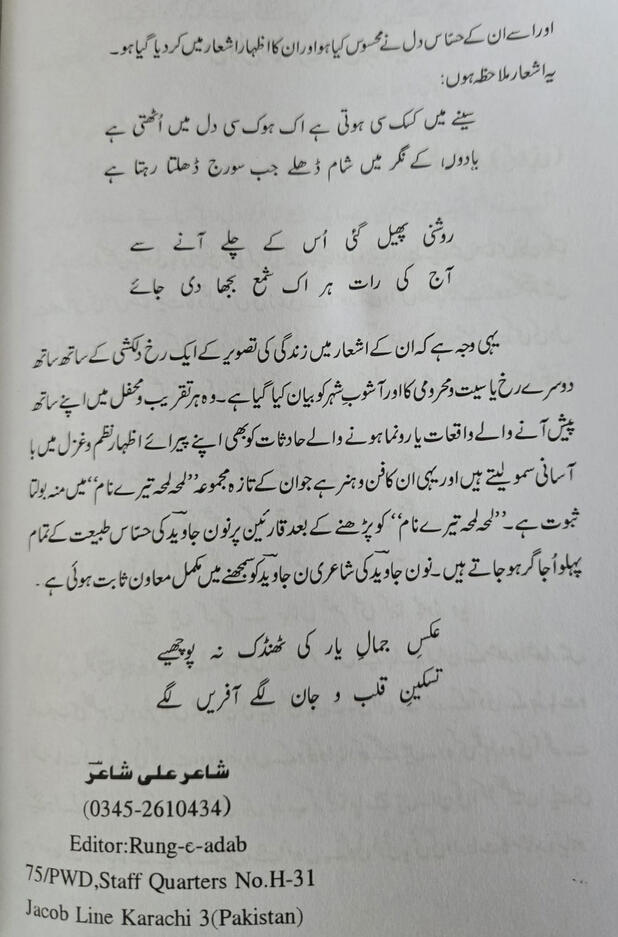 اور اسے ان کے حسّاس دل نے محسوس کیا ہو اور ان کا اظہار اشعار میں کر دیا گیا ہو۔
یہ اشعار ملاحظہ ہوں:
سینے میں کسک سی ہوتی ہے اک ہوک سی دل میں اُٹھتی ہے
یادوں کے نگر میں شام ڈھلے جب سورج ڈھلتا رہتا ہے
روشنی پھیل گئی اُس کے چلے آنے سے
آج کی رات ہر اک شمع بجھا دی جائے
یہی وجہ ہے کہ ان کے اشعار میں زندگی کی تصویر کے ایک رخ دلکشی کے ساتھ ساتھ
دوسرے رخ یاسیت و محرومی کا اور آشوبِ شہر کو بیان کیا گیا ہے۔ وہ ہر تقریب و محفل میں اپنے ساتھ
پیش آنے والے واقعات یا رونما ہونے والے حادثات کو بھی اپنے پیرائے اظہار نظم و غزل میں با
آسانی سمو لیتے ہیں اور یہی ان کا فن و ہنر ہے جو ان کے تازہ مجموعہ ”لمحہ لمحہ تیرے نام“ میں منہ بولتا
ثبوت ہے۔ ”لمحہ لمحہ تیرے نام“ کو پڑھنے کے بعد قارئین پر نون جاویدؔ کی حسّاس طبیعت کے تمام
پہلو اُجاگر ہو جاتے ہیں۔ نون جاویدؔ کی شاعری ن جاویدؔ کو سمجھنے میں مکمل معاون ثابت ہوئی ہے۔
عکسِ جمالِ یار کی ٹھنڈک نہ پوچھیے
تسکینِ قلب و جان لگے آفریں لگے
شاعر علی شاعرؔ
(0345-2610434)
Editor:Rung-e-adab
75/PWD,Staff Quarters No.H-31
Jacob Line Karachi 3(Pakistan)